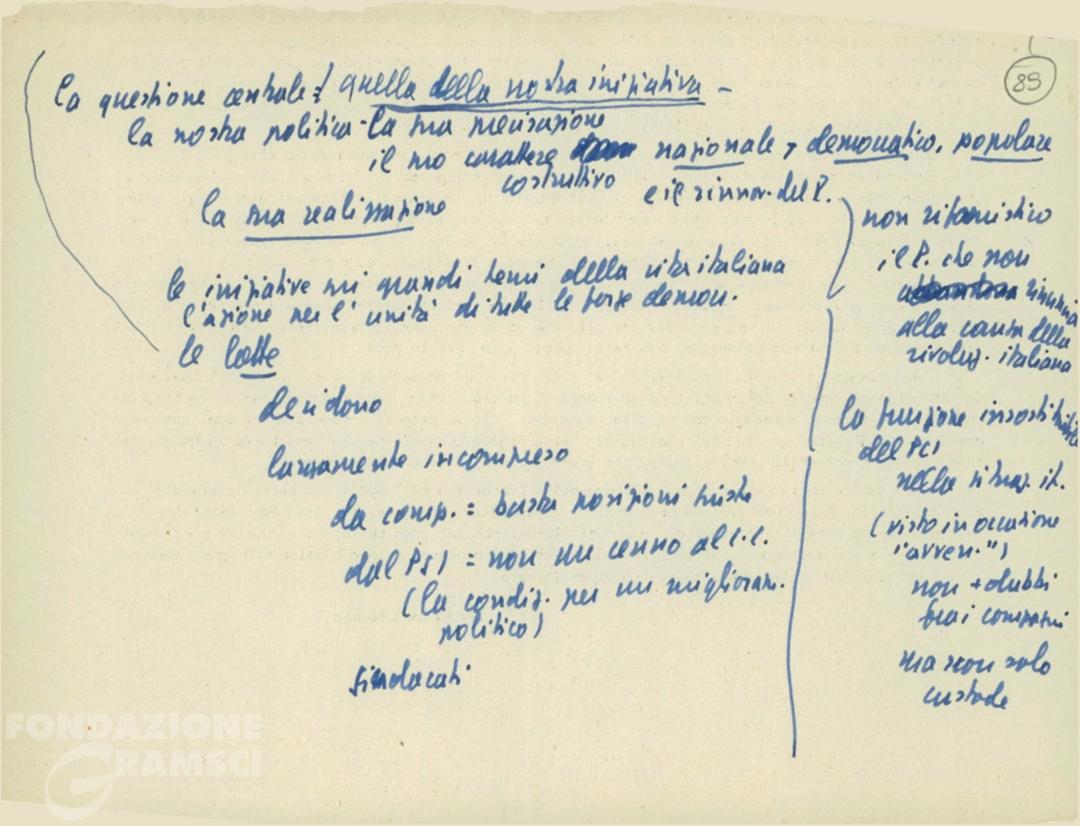 89
La questione centrale: quella della nostra iniziativa -
la nostra politica - la sua precisazione
il suo carattere nazionale, democratico, popolare
costruttivo
e il rinnov. del P.
la sua realizzazione
le iniziative sui grandi temi della vita italiana
l'azione per l'unità di tutte le forze democr.
le lotte
decidono
largamente incompreso
da comp. = basta posizioni giuste
dal PSI = non un cenno al C.C.
(la condiz. per un miglioram.
politico)
sindacati
non riformistico
il P. che non
rinunzia
alla causa della
rivoluz. italiana
la funzione insostituibile
del PCI
nella situaz. it.
(visto in occasione
non + dubbi
fra i compagni
ma non solo
custode
FONDAZIONE
GRAMSCI
onlus